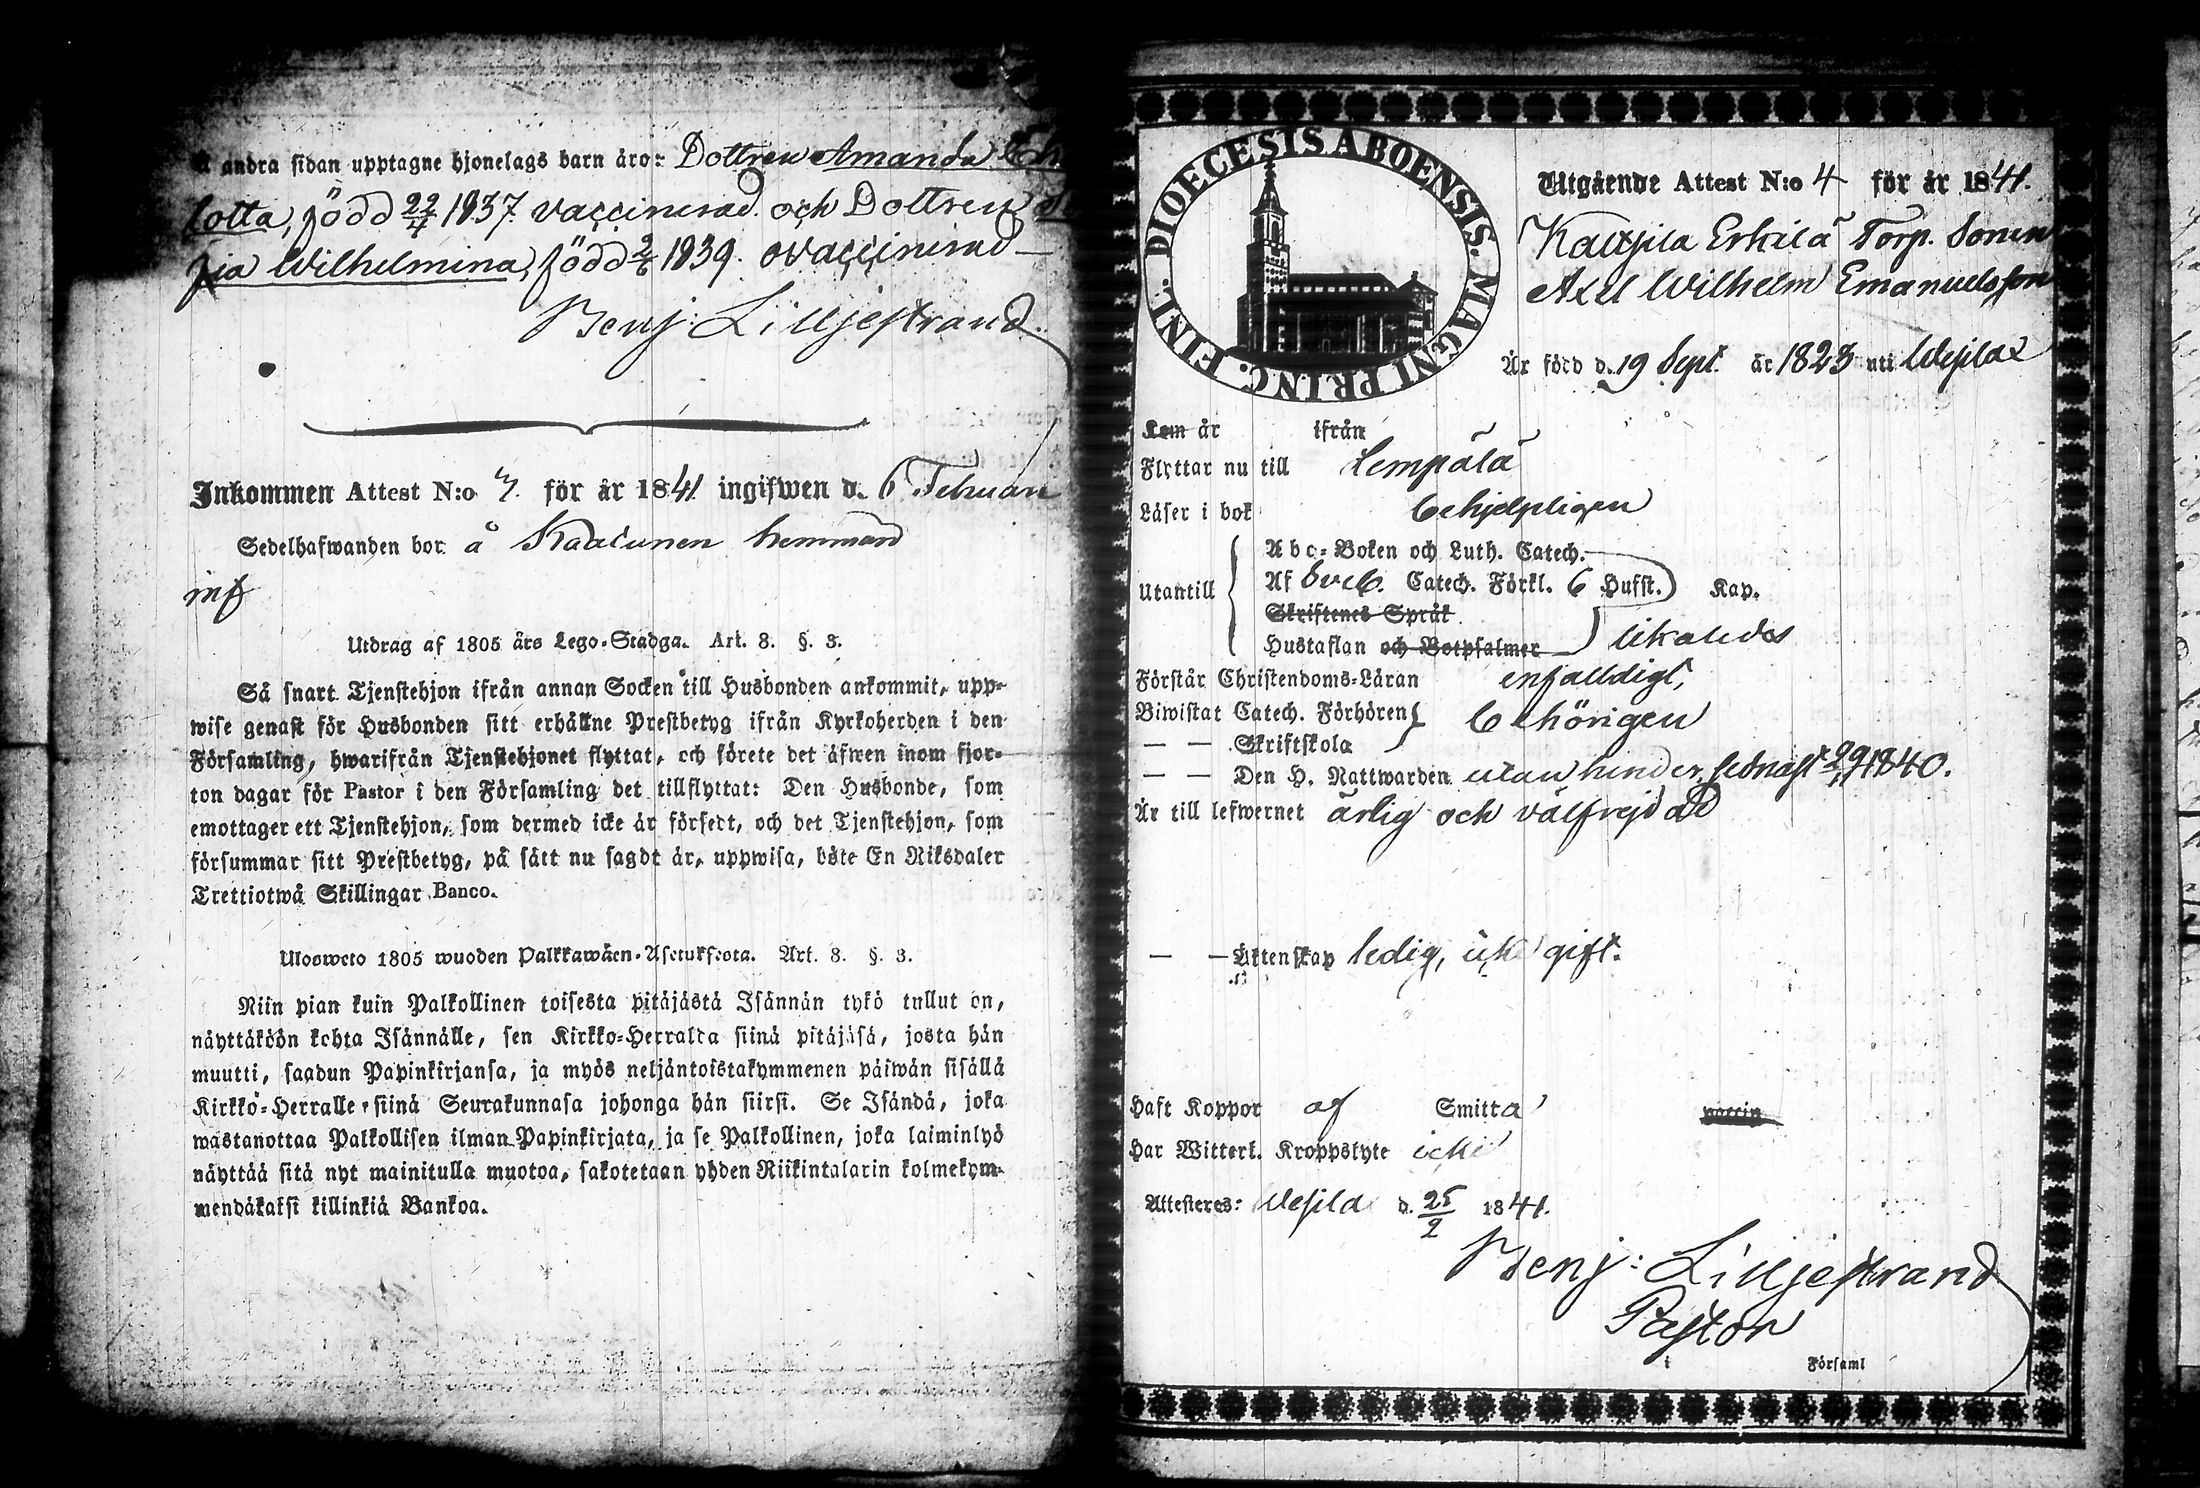 å andra sidan upptagne hjonelags barn äro: Dottren Amanda
lotta, född 22/4 1837. vaccinerad. och Dottren
fia Wilhelmina, född 2/6 1839. ovaccinerad
Benj: Lilljestrand.
Inkommen Attest N:o 7. för år 1841 ingifwen d. 6 Februari
Sedelhafwanden bor å hemman
inf
Utdrag af 1805 års Lego-Stadga. Art. 8. §. 3.
Så snart Tjenstehjon ifrån annan Socken till Husbonden ankommit, upp-
wise genast för Husbonden sitt erhållne Prestbetyg ifrån Kyrkoherden i den
Församling, hwarifrån Tjenstehjonet flyttat, och förete det äfwen inom fjor-
ton dagar för Pastor i den Församling det tillflyttat: Den Husbonde, som
emottager ett Tjenstehjon, som dermed icke är försedt, och det Tjenstehjon, som
försummar sitt Prestbetyg, på sätt nu sagdt är, uppwisa, böte En Riksdaler
Trettiotwå Skillingar Banco.
Ulosweto 1805 wuoden Palkkawäen-Asetuksesta. Art. 8. §. 3.
Niin pian kuin Palkollinen toisesta pitäjästä Isännän tykö tullut on,
näyttäköön kohta Isännälle, sen Kirkko-Herralda siinä pitäjäsä, josta hän
muutti, saadun Papinkirjansa, ja myös neljäntoistakymmenen päiwän sisällä
Kirkko-Herralle siinä Seurakunnasa johonga hän siirsi. Se Isändä, joka
wastanottaa Palkollisen ilman Papinkirjata, ja se Palkollinen, joka laiminlyö
näyttää sitä nyt mainitulla muotoa, sakotetaan yhden Riikintalarin kolmekym-
mendäkaksi killinkiä Bankoa.
DIOECESIS ABOENSIS. MAGNI PRINC. FINL.
Utgående Attest N:o 4 för år 1841.
Erkilä Torp. Sonen
Axel Wilhelm Emanuelsson
Är född d. 19 Sept. år 1823 uti Wesilax
Kom år ifrån
Flyttar nu till Lempälä
Läser i bok behjelpligen
Utantill
Abc-Boken och Luth. Catech.
Af Sveb. Catech. Förkl. 6 Hufst. Kap.
Skriftenes Språk
Hustaflan och Botpsalmer likaledes
Förstår Christendoms-Läran enfalldigt,
Biwistat Catech. Förhören behörigen
— — Skriftskola
— — Den H. Nattwarden utan hinder, sednast 29/ 1840.
Är till lefwernet ärlig och välfrejdad
— — Äktenskap ledig, icke gift.
Haft Koppor af Smitta vaccin
Har Witterl. Kroppslyte icke
Attesteres: Wesila d. 25/2 1841.
Benj: Lilljestrand
Pastor
i Församl